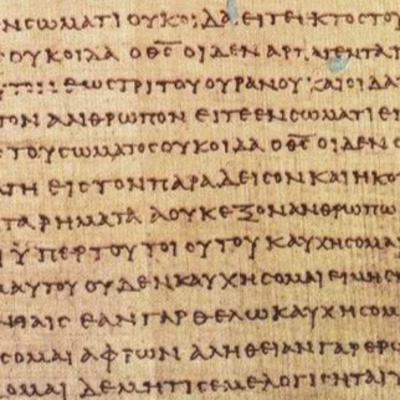 ΝCΩΜΑΤΙ ΟΥΚΟΙΔΑ ΕΙΤΕΕΚΤΟCΤΟΥ
ΟΥΚΟΙΔΑ ΟΘ̅C̅ ΟΙΔΕΝ ΑΡΠΑΓΕΝΤΑ
ΕΩCΤΡΙΤΟΥΟΥΡΑΝΟΥ ΚΑΙΟΙΔΑ
ΤΟΝ ΑΝΘΡΩΠΟΝ ΕΙΤΕΕΝCΩΜΑΤΙ ΕΙ
CΤΟΥCΩΜΑΤΟCΟΥΚΟΙΔΑ ΟΘ̅C̅ ΟΙΔΕΝ Ο
ΓΗ ΕΙCΤΟΝΠΑΡΑΔΕΙCΟΝΚΑΙΗΚΟΥ
ΤΑΡΗΜΑΤΑ ΑΟΥΚΕΞΟΝΑΝΘΡΩΠΩ
ΫΠΕΡΤΟΥΤΟΙΟΥΤΟΥ ΚΑΥΧΗCΟΜΑΙ
ΜΑΥΤΟΥ ΟΥΔΕΝΚΑΥΧΗCΟΜΑΙ ΕΙΜΗ
ΑΙC ΕΑΝΓΑΡΘΕΛΩΚΑΥΧΗCΟΜ
CΟΜΑΙ ΑΦΡΩΝ ΑΛΗΘΕΙΑΝΓΑΡΕΡΩ
ΟΜΑΙ ΔΕΜΗΤΙCΕΜΕΛΟΓΙCΗΤΑΙΥ